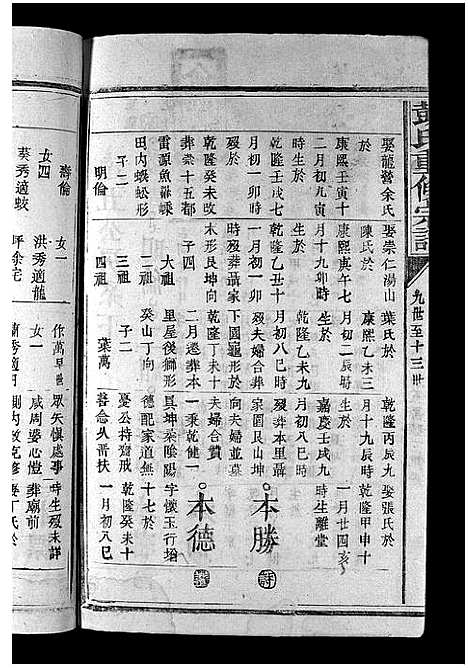 彭氏重修宗譜
九世至十三世
娶龍營余氏
於
康熙壬寅十
二月初九寅
時生於
乾隆壬戌七
月初一卯時
歿於
乾隆癸未十
一月初八巳
葬崇十五都
雷源魚
田內蜈蚣形
子二
明倫
壽倫
女四
葵秀適蛟
娶崇仁湯山
陳氏於
康熙庚午七
月十九卯時
生於
乾隆乙丑十
時歿葬聶家
木形艮坤向
子四
大祖
二祖
三祖
四祖
女一
洪秀適龍
坪余宅
葉氏於
康熙乙未三
月初二辰時
生於
乾隆乙未九
月初八巳時
歿夫婦合葬
下園龜形
乾隆丁未十
二月遷葬於
里屋後獅形
癸山丁向
子二
葉萬
作萬早世
女一
蘭秀適
乾隆丙辰九
月十九辰時
生於
嘉慶壬戌九
月初八巳時
歿葬本里聶
家園艮山坤
向夫婦並墓
夫婦合賛
一乘乾健一
具坤柔陰陽
德配家道無
憂公持齋戒
善念久晋扶
眾矢慎處事
咸周婆心愷
娶張氏於
乾隆甲申十
一月廿四亥
時生離堂
本勝
本德
字懷玉行培
十七於
乾隆癸未十
一月初八巳
時生歿未詳
葬廟前
娶丁氏於